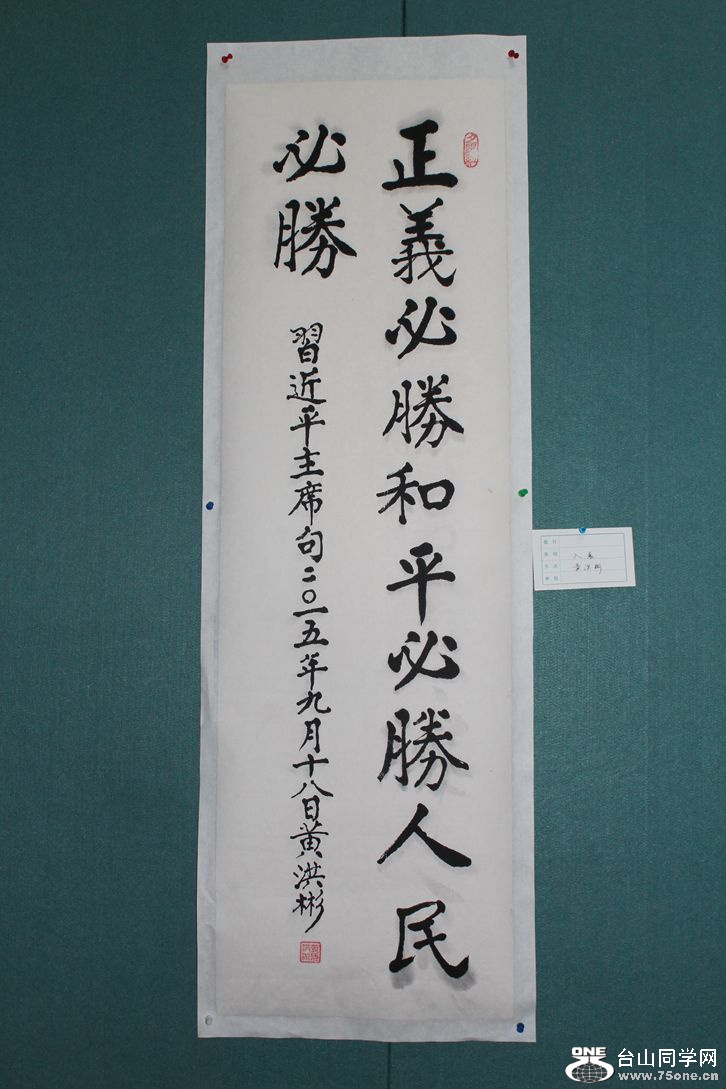 正義必勝和平必勝人民
必勝
習近平主席句二〇一五年九月十八日黄洪彬
入展
黄洪彬
ONE
台山同学网
www.75one.cn